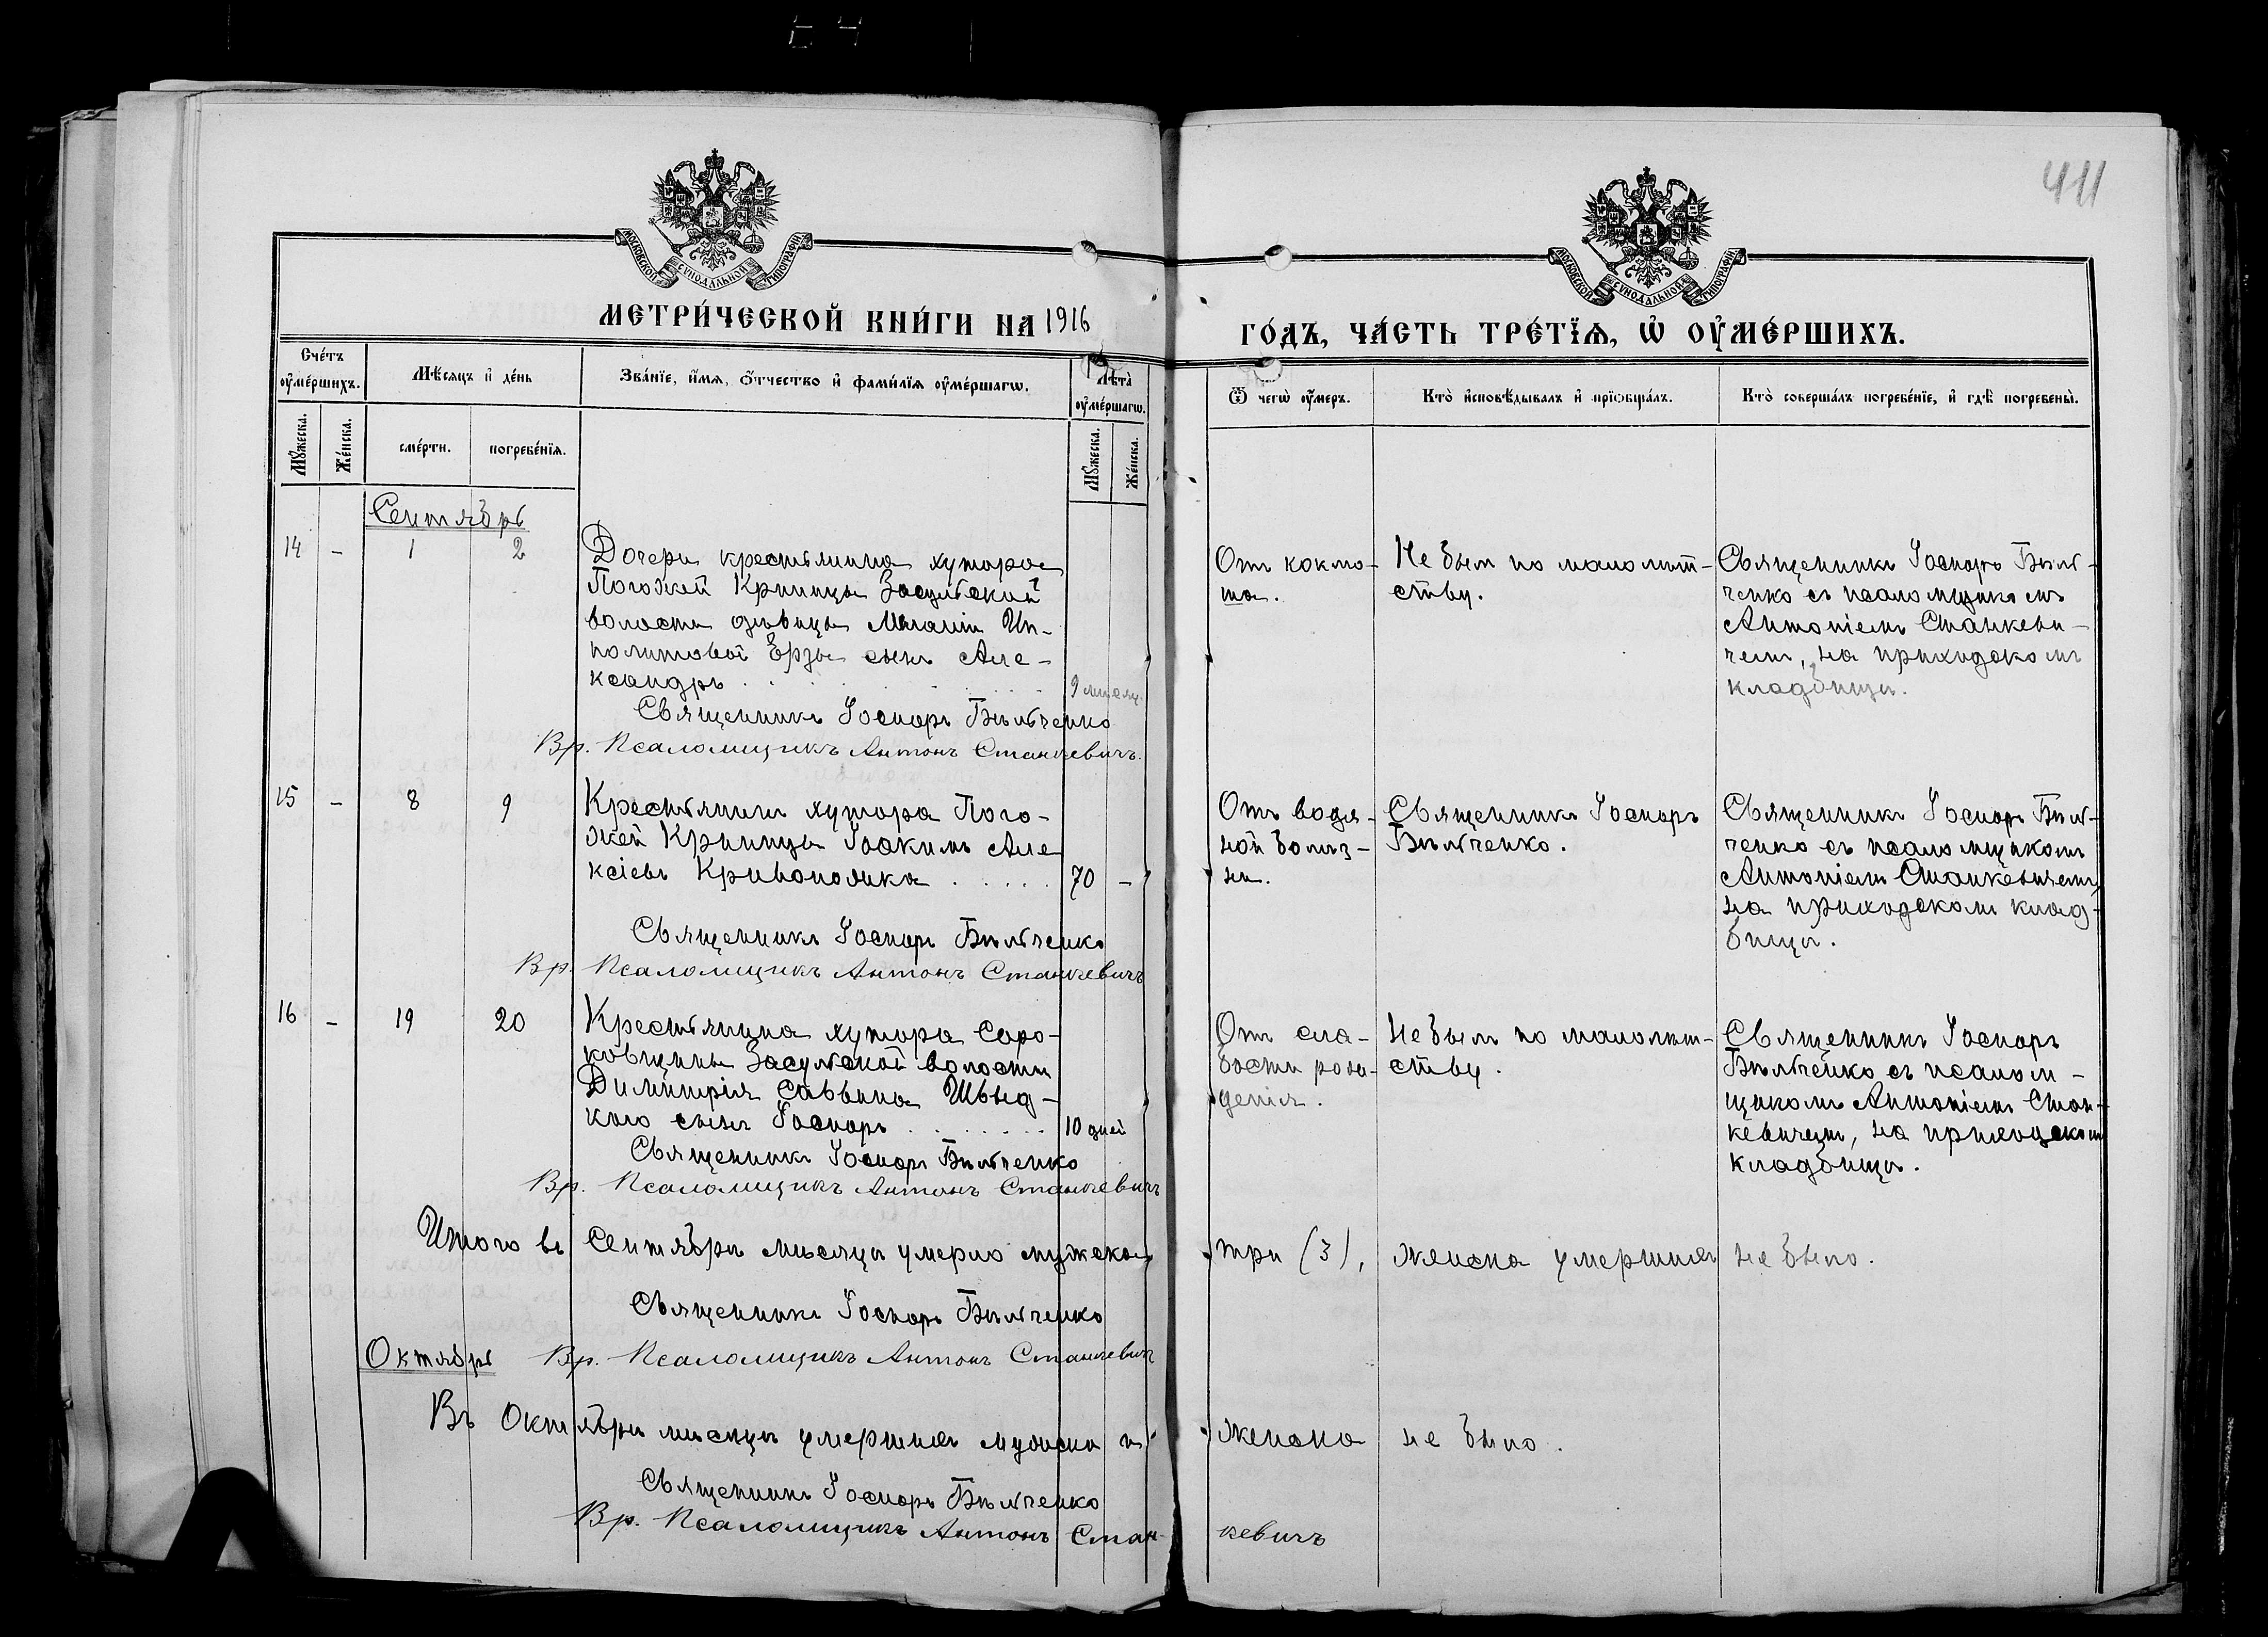 411
МОСКОВСКОЙ СѴНОДАЛЬНОЙ ТИПОГРАФІИ
МОСКОВСКОЙ СѴНОДАЛЬНОЙ ТИПОГРАФІИ
МЕТРИ́ЧЕСКОЙ КНИ́ГИ НА 1916
ГО́ДЪ, ЧА́СТЬ ТРЕ́ТЇѦ, Ѡ҆ ОУ҆МЕ́РШИХЪ.
Сче́тъ оу҆ме́ршихъ.
Мꙋ́жеска.
Же́нска.
Мѣ́сѧцъ и҆ де́нь
сме́рти.
погребе́нїѧ.
Зва́нїе, и҆́мѧ, ѻ҆́тчество и҆ фами́лїѧ оу҆ме́ршагѡ.
Лѣ́та оу҆ме́ршагѡ.
Мꙋ́жеска.
Же́нска.
Ѿ чегѡ̀ оу҆́меръ.
Кто̀ и҆сповѣ́дывалъ и҆ прїѻбща́лъ.
Кто̀ соверша́лъ погребе́нїе, и҆ гдѣ̀ погребены̀.
Сентябрь
14 - 1 2
Дочери крестьянина хутора
Погожей Криницы Засульской
волости дѣвицы Меланіи Ип-
политовой Ерзы сынъ Але-
ксандръ
9 мѣсяц.
Священникъ Іосифъ Бѣльченко
Вр. Псаломщикъ Антонъ Станкевичъ.
Не былъ по малолѣт-
ству.
Священникъ Іосифъ Бѣль-
ченко съ псаломщикомъ
Антоніемъ Станкеви-
чемъ, на приходскомъ
кладбищѣ.
15 - 8 9
Крестьянинъ хутора Пого-
жей Криницы Іоакимъ Але-
ксіевъ Кривополяка . . . . . 70 -
Священникъ Іосифъ Бѣльченко
Вр. Псаломщикъ Антонъ Станкевичъ
Отъ водя-
ной болѣз-
ни.
Священникъ Іосифъ
Бѣльченко.
Священникъ Іосифъ Бѣль-
ченко съ псаломщикомъ
Антоніемъ Станкевичемъ,
на приходскомъ клад-
бищѣ.
16 - 19 20
Крестьянина хутора Соро-
ковщины Засульской волости
Димитрія Саввина Швыд-
кого сынъ Іосифъ . . . . . . . 10 дней
Священникъ Іосифъ Бѣльченко
Вр. Псаломщикъ Антонъ Станкевичъ
Отъ сла-
бости рож-
денія.
Не былъ по малолѣт-
ству.
Священникъ Іосифъ
Бѣльченко съ псалом-
щикомъ Антоніемъ Стан-
кевичемъ, на приходскомъ
кладбищѣ.
Итого въ Сентябрѣ мѣсяцѣ умерло мужска три (3), женска умершихъ не было.
Священникъ Іосифъ Бѣльченко
Октябрь Вр. Псаломщикъ Антонъ Станкевичъ
Въ Октябрѣ мѣсяцѣ умершихъ мужска и женска не было.
Священникъ Іосифъ Бѣльченко
Вр. Псаломщикъ Антонъ Станкевичъ